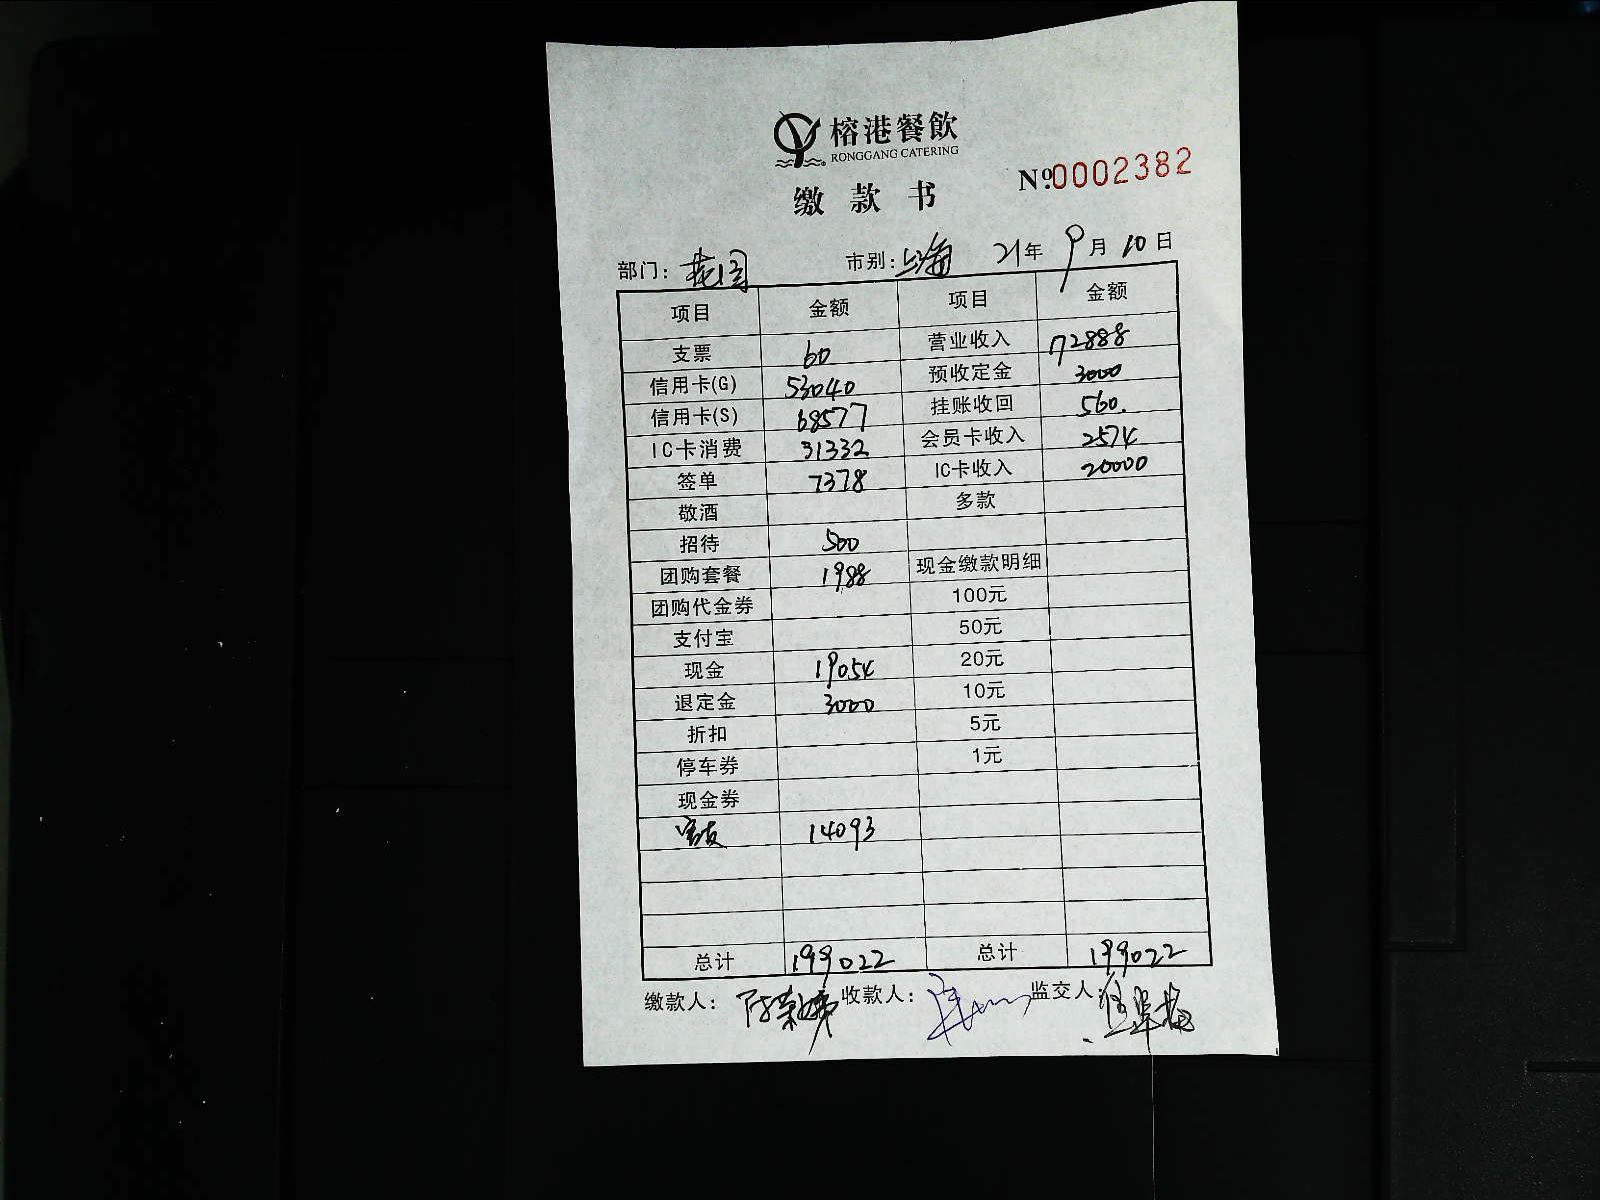 榕港餐飲
RONGGANG CATERING
缴款书
№0002382
部门：花园 市别：上海 21年9月10日
项目 金额 项目 金额
支票 60 营业收入 72888
信用卡(G) 53040 预收定金 3000
信用卡(S) 68577 挂账收回 560.
IC卡消费 31332 会员卡收入 2574
签单 7378 IC卡收入 20000
敬酒 多款
招待 500
团购套餐 1988 现金缴款明细
团购代金券 100元
支付宝 50元
现金 19054 20元
退定金 3000 10元
折扣 5元
停车券 1元
现金券
14093
总计 199022 总计 199022
缴款人： 收款人： 监交人：